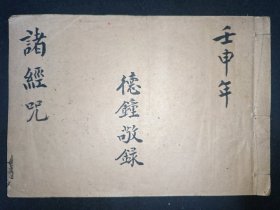 壬申年
德鐘敬録
諸經咒